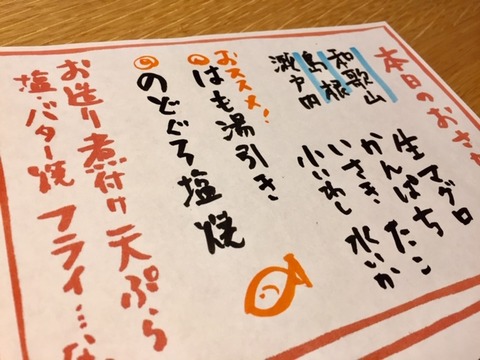 本日のおさ
和歌山
島根
瀬戸内
生マグロ
かんぱち たこ
いさき 水いか
小いわし
おススメ!
はも湯引き
のどぐろ塩焼
お造り 煮付け 天ぷら
塩・バター焼 フライ…